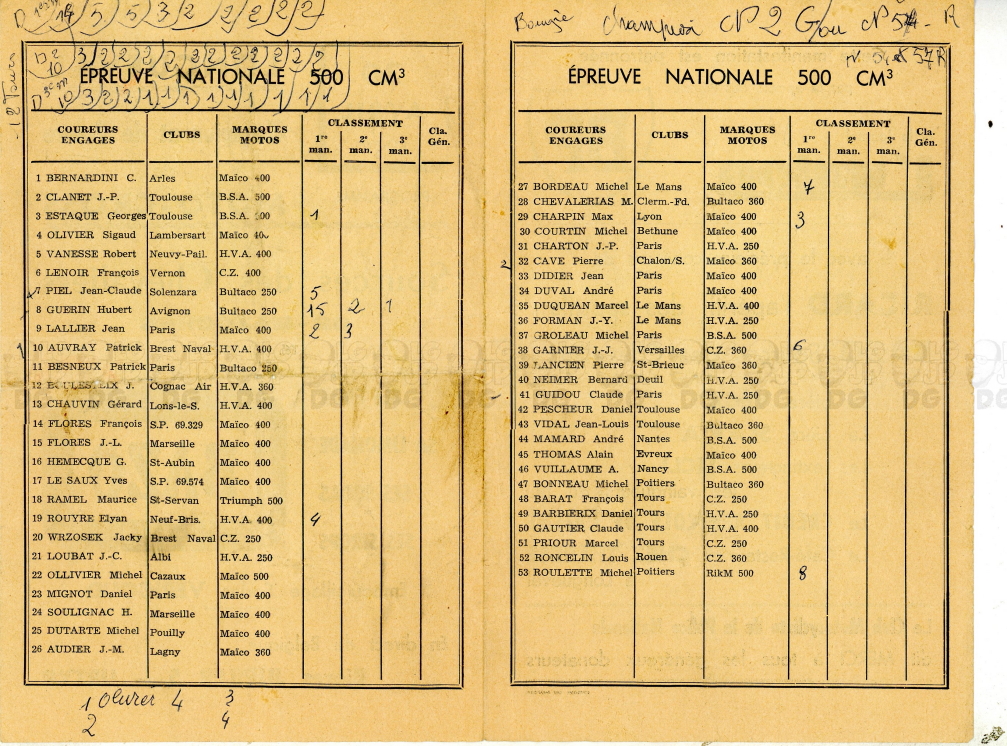 D 5 5 3 2 2 2 2 2
12 Tours
D 2 3 2 2 2 2 2 2 2 2 2 2 2
10
ÉPREUVE NATIONALE 500 CM³
D 10 3 2 2 1 1 1 1 1 1 1 1 1
COUREURS ENGAGES CLUBS MARQUES MOTOS CLASSEMENT 1re man. 2e man. 3e man. Cla. Gén.
1 BERNARDINI C. Arles Maïco 400
2 CLANET J.-P. Toulouse B.S.A. 500
3 ESTAQUE Georges Toulouse B.S.A. 500 1
4 OLIVIER Sigaud Lambersart Maïco 400
5 VANESSE Robert Neuvy-Pail. H.V.A. 400
6 LENOIR François Vernon C.Z. 400
7 PIEL Jean-Claude Solenzara Bultaco 250 5
8 GUERIN Hubert Avignon Bultaco 250 15 2 1
9 LALLIER Jean Paris Maïco 400 2 3
10 AUVRAY Patrick Brest Naval H.V.A. 400
11 BESNEUX Patrick Paris Bultaco 250
12 BOULESTEIX J. Cognac Air H.V.A. 360
13 CHAUVIN Gérard Lons-le-S. H.V.A. 400
14 FLORES François S.P. 69.329 Maïco 400
15 FLORES J.-L. Marseille Maïco 400
16 HEMECQUE G. St-Aubin Maïco 400
17 LE SAUX Yves S.P. 69.574 Maïco 400
18 RAMEL Maurice St-Servan Triumph 500
19 ROUYRE Elyan Neuf-Bris. H.V.A. 400 4
20 WRZOSEK Jacky Brest Naval C.Z. 250
21 LOUBAT J.-C. Albi H.V.A. 250
22 OLLIVIER Michel Cazaux Maïco 500
23 MIGNOT Daniel Paris Maïco 400
24 SOULIGNAC H. Marseille Maïco 400
25 DUTARTE Michel Pouilly Maïco 400
26 AUDIER J.-M. Lagny Maïco 360
1 Olivier 4 3
2 4
Bougie Champion N 2 G ou N 54 - R
57 R
ÉPREUVE NATIONALE 500 CM³
COUREURS ENGAGES CLUBS MARQUES MOTOS CLASSEMENT 1re man. 2e man. 3e man. Cla. Gén.
27 BORDEAU Michel Le Mans Maïco 400 7
28 CHEVALERIAS M. Clerm.-Fd. Bultaco 360
29 CHARPIN Max Lyon Maïco 400 3
30 COURTIN Michel Bethune Maïco 400
31 CHARTON J.-P. Paris H.V.A. 250
2 32 CAVE Pierre Chalon/S. Maïco 360
33 DIDIER Jean Paris Maïco 400
34 DUVAL André Paris Maïco 400
35 DUQUEAN Marcel Le Mans H.V.A. 400
36 FORMAN J.-Y. Le Mans H.V.A. 250
37 GROLEAU Michel Paris B.S.A. 500
38 GARNIER J.-J. Versailles C.Z. 360 6
39 LANCIEN Pierre St-Brieuc Maïco 360
40 NEIMER Bernard Deuil H.V.A. 250
41 GUIDOU Claude Paris H.V.A. 250
42 PESCHEUR Daniel Toulouse Maïco 400
43 VIDAL Jean-Louis Toulouse Bultaco 360
44 MAMARD André Nantes B.S.A. 500
45 THOMAS Alain Evreux Maïco 400
46 VUILLAUME A. Nancy B.S.A. 500
47 BONNEAU Michel Poitiers Bultaco 360
48 BARAT François Tours C.Z. 250
49 BARBIERIX Daniel Tours H.V.A. 250
50 GAUTIER Claude Tours H.V.A. 400
51 PRIOUR Marcel Tours C.Z. 250
52 RONCELIN Louis Rouen C.Z. 360
53 ROULETTE Michel Poitiers RikM 500 8